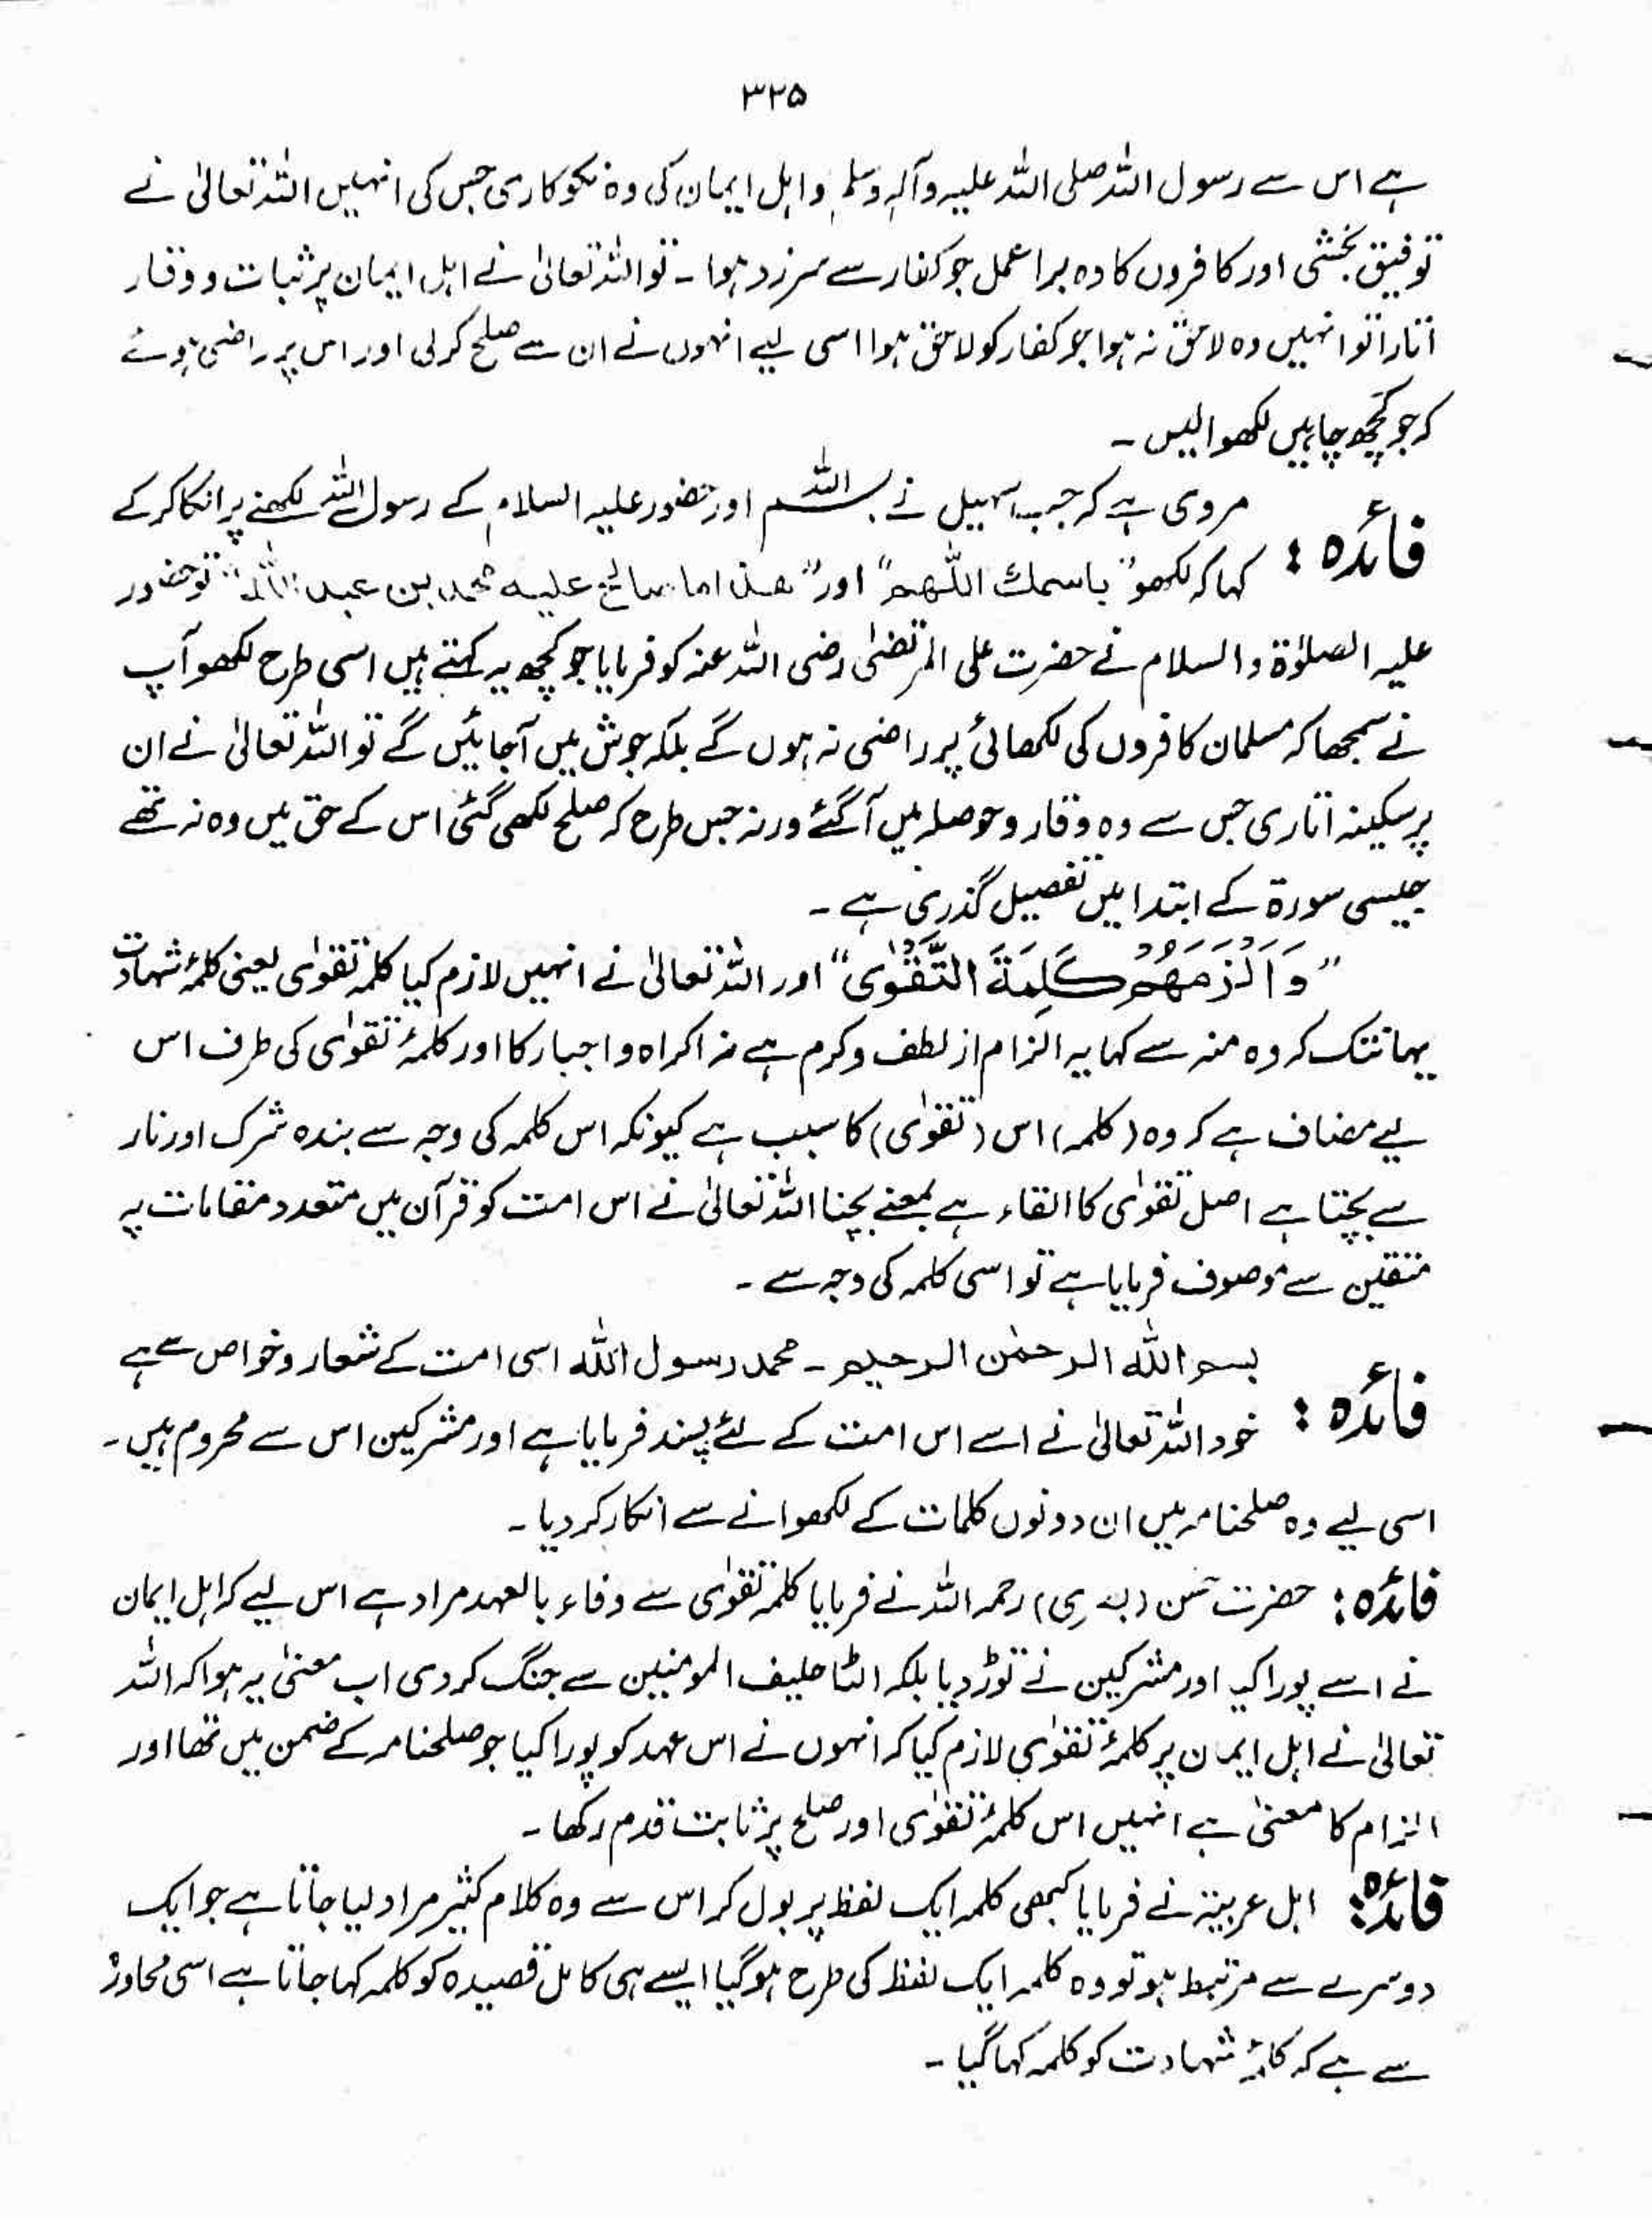 ۳۲۵
ہے اس سے رسول اللہ صلی اللہ علیہ وآلہ وسلم و اہل ایمان کی وہ نکوکاری جس کی انہیں اللہ تعالیٰ نے
توفیق بخشی اور کافروں کا وہ برا عمل جو کفار سے سرزد ہوا ۔ تو اللہ تعالیٰ نے اہل ایمان پر ثبات و وقار
اتارا تو انہیں وہ لاحق نہ ہوا جو کفار کو لاحق ہوا اسی لیے انہوں نے ان سے صلح کر لی اور اس پر راضی ہوئے
کہ جو کچھ چاہیں لکھوا لیں ۔
فائدہ : مروی ہے کہ جب سہیل نے بسم اللہ اور حضور علیہ السلام کے رسول اللہ لکھنے پر انکا کر کے
کہا کہ لکھو "باسمك اللّٰھم" اور "ھذا ما صالح علیہ محمد بن عبد اللہ" تو حضور
علیہ الصلوٰۃ والسلام نے حضرت علی المرتضیٰ رضی اللہ عنہ کو فرمایا جو کچھ یہ کہتے ہیں اسی طرح لکھو آپ
نے سمجھا کہ مسلمان کافروں کی لکھائی پر راضی نہ ہوں گے بلکہ جوش میں آجائیں گے تو اللہ تعالیٰ نے ان
پر سکینہ اتاری جس سے وہ وقار و حوصلہ میں آگئے ورنہ جس طرح کہ صلح لکھی گئی اس کے حق میں وہ نہ تھے
جیسی سورۃ کے ابتدا میں تفصیل گذری ہے ۔
"وَاَلْزَمَھُمْ کَلِمَۃَ التَّقْوٰی" اور اللہ تعالیٰ نے انہیں لازم کیا کلمہ تقویٰ یعنی کلمۂ شہادت
یہانتک کہ وہ منہ سے کہا یہ الزام از لطف و کرم ہے نہ اکراہ و اجبار کا اور کلمۂ تقویٰ کی طرف اس
لیے مضاف ہے کہ وہ (کلمہ) اس (تقویٰ) کا سبب ہے کیونکہ اس کلمہ کی وجہ سے بندہ شرک اور نار
سے بچتا ہے اصل تقویٰ کا اتقاء ہے بمعنے بچنا اللہ تعالیٰ نے اس امت کو قرآن میں متعدد مقامات پہ
متقین سے موصوف فرمایا ہے تو اسی کلمہ کی وجہ سے ۔
فائدہ : بسم اللّٰہ الرحمٰن الرحیم ۔ محمد رسول اللّٰہ اسی امت کے شعار و خواص سے ہے
خود اللہ تعالیٰ نے اسے اس امت کے لئے پسند فرمایا ہے اور مشرکین اس سے محروم ہیں ۔
اسی لیے وہ صلحنامہ میں ان دونوں کلمات کے لکھوانے سے انکار کر دیا ۔
فائدہ : حضرت حسن (بصری) رحمہ اللہ نے فرمایا کلمہ تقویٰ سے وفاء بالعہد مراد ہے اس لیے کہ اہل ایمان
نے اسے پورا کیا اور مشرکین نے توڑ دیا بلکہ الٹا حلیف المومنین سے جنگ کر دی اب معنیٰ یہ ہوا کہ اللہ
تعالیٰ نے اہل ایمان پر کلمۂ تقویٰ لازم کیا کہ انہوں نے اس عہد کو پورا کیا جو صلحنامہ کے ضمن میں تھا اور
الزام کا معنیٰ ہے انہیں اس کلمۂ تقویٰ اور صلح پر ثابت قدم رکھا ۔
فائدہ : اہل عربیۃ نے فرمایا کبھی کلمہ ایک لفظ پر بول کر اس سے وہ کلام کثیر مراد لیا جاتا ہے جو ایک
دوسرے سے مرتبط ہو تو وہ کلمہ ایک لفظ کی طرح ہوگیا ایسے ہی کامل قصیدہ کو کلمہ کہا جاتا ہے اسی محاورہ
سے ہے کہ کلمۂ شہادت کو کلمہ کہا گیا ۔